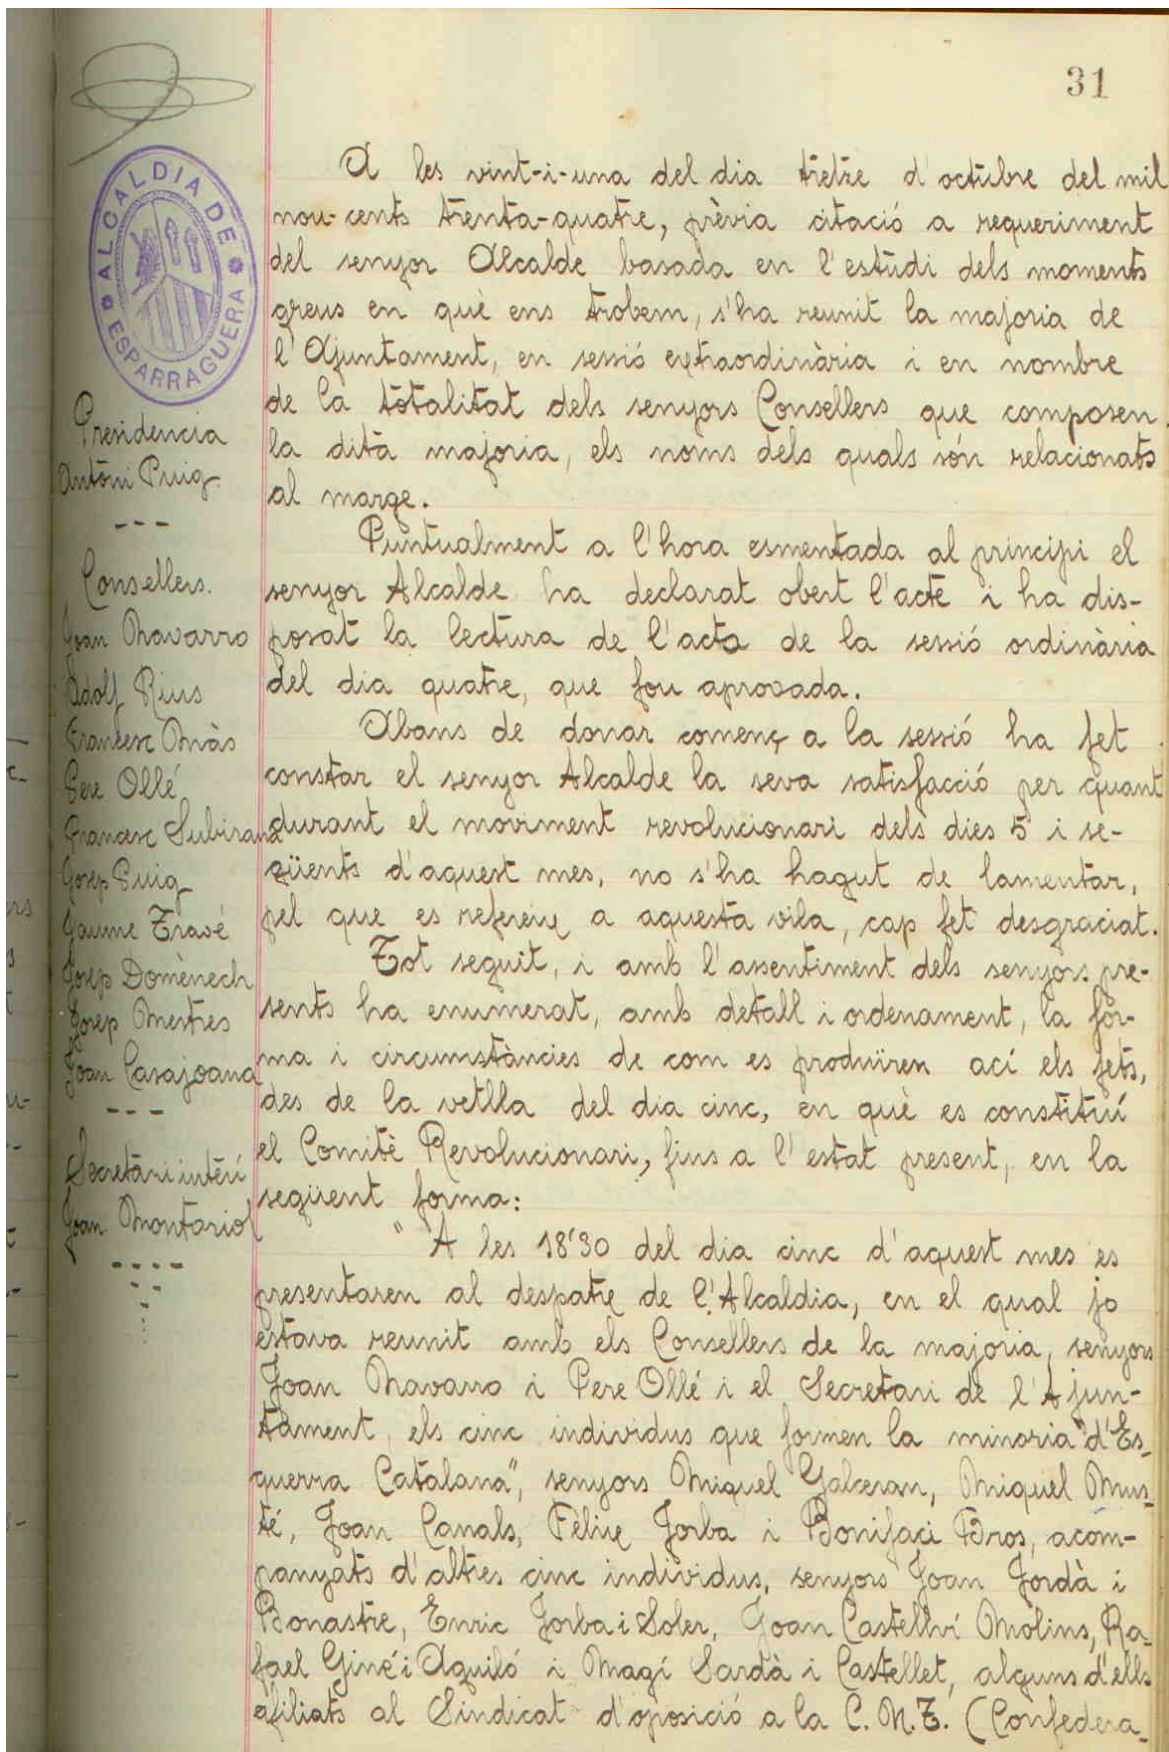 31
ALCALDIA DE
ESPARRAGUERA
Presidencia
Antoni Puig.
---
Consellers.
Joan Navarro
Adolf Rius
Francesc Màs
Pere Ollé
Francesc Subirana
Josep Puig
Jaume Travé
Josep Domènech
Josep Mestres
Joan Casajoana
---
Secretari interí
Joan Montariol
A les vint-i-una del dia tretze d'octubre del mil
nou-cents trenta-quatre, prèvia citació a requeriment
del senyor Alcalde basada en l'estudi dels moments
greus en què ens trobem, s'ha reunit la majoria de
l'Ajuntament, en sessió extraordinària i en nombre
de la totalitat dels senyors Consellers que composen
la dita majoria, els noms dels quals són relacionats
al marge.
Puntualment a l'hora esmentada al principi el
senyor Alcalde ha declarat obert l'acte i ha dis-
posat la lectura de l'acta de la sessió ordinària
del dia quatre, que fou aprovada.
Abans de donar començ a la sessió ha fet
constar el senyor Alcalde la seva satisfacció per quant
durant el moviment revolucionari dels dies 5 i se-
güents d'aquest mes, no s'ha hagut de lamentar,
pel que es refereix a aquesta vila, cap fet desgraciat.
Tot seguit, i amb l'assentiment dels senyors pre-
sents ha enumerat, amb detall i ordenament, la for-
ma i circumstàncies de com es produïren ací els fets,
des de la vetlla del dia cinc, en què es constituí
el Comitè Revolucionari, fins a l'estat present, en la
següent forma:
"A les 18'30 del dia cinc d'aquest mes es
presentaren al despatx de l'Alcaldia, en el qual jo
estava reunit amb els Consellers de la majoria, senyors
Joan Navarro i Pere Ollé i el Secretari de l'Ajun-
tament, els cinc individus que formen la minoria "d'Es-
querra Catalana", senyors Miquel Galceran, Miquel Mus-
té, Joan Canals, Fèlix Jorba i Bonifaci Bros, acom-
panyats d'altres cinc individus, senyors Joan Jordà i
Bonastre, Enric Jorba i Soler, Joan Castellví Molins, Ra-
fael Giné i Aguiló i Magí Sardà i Castellet, alguns d'ells
afiliats al Sindicat d'oposició a la C. N. T. (Confedera-